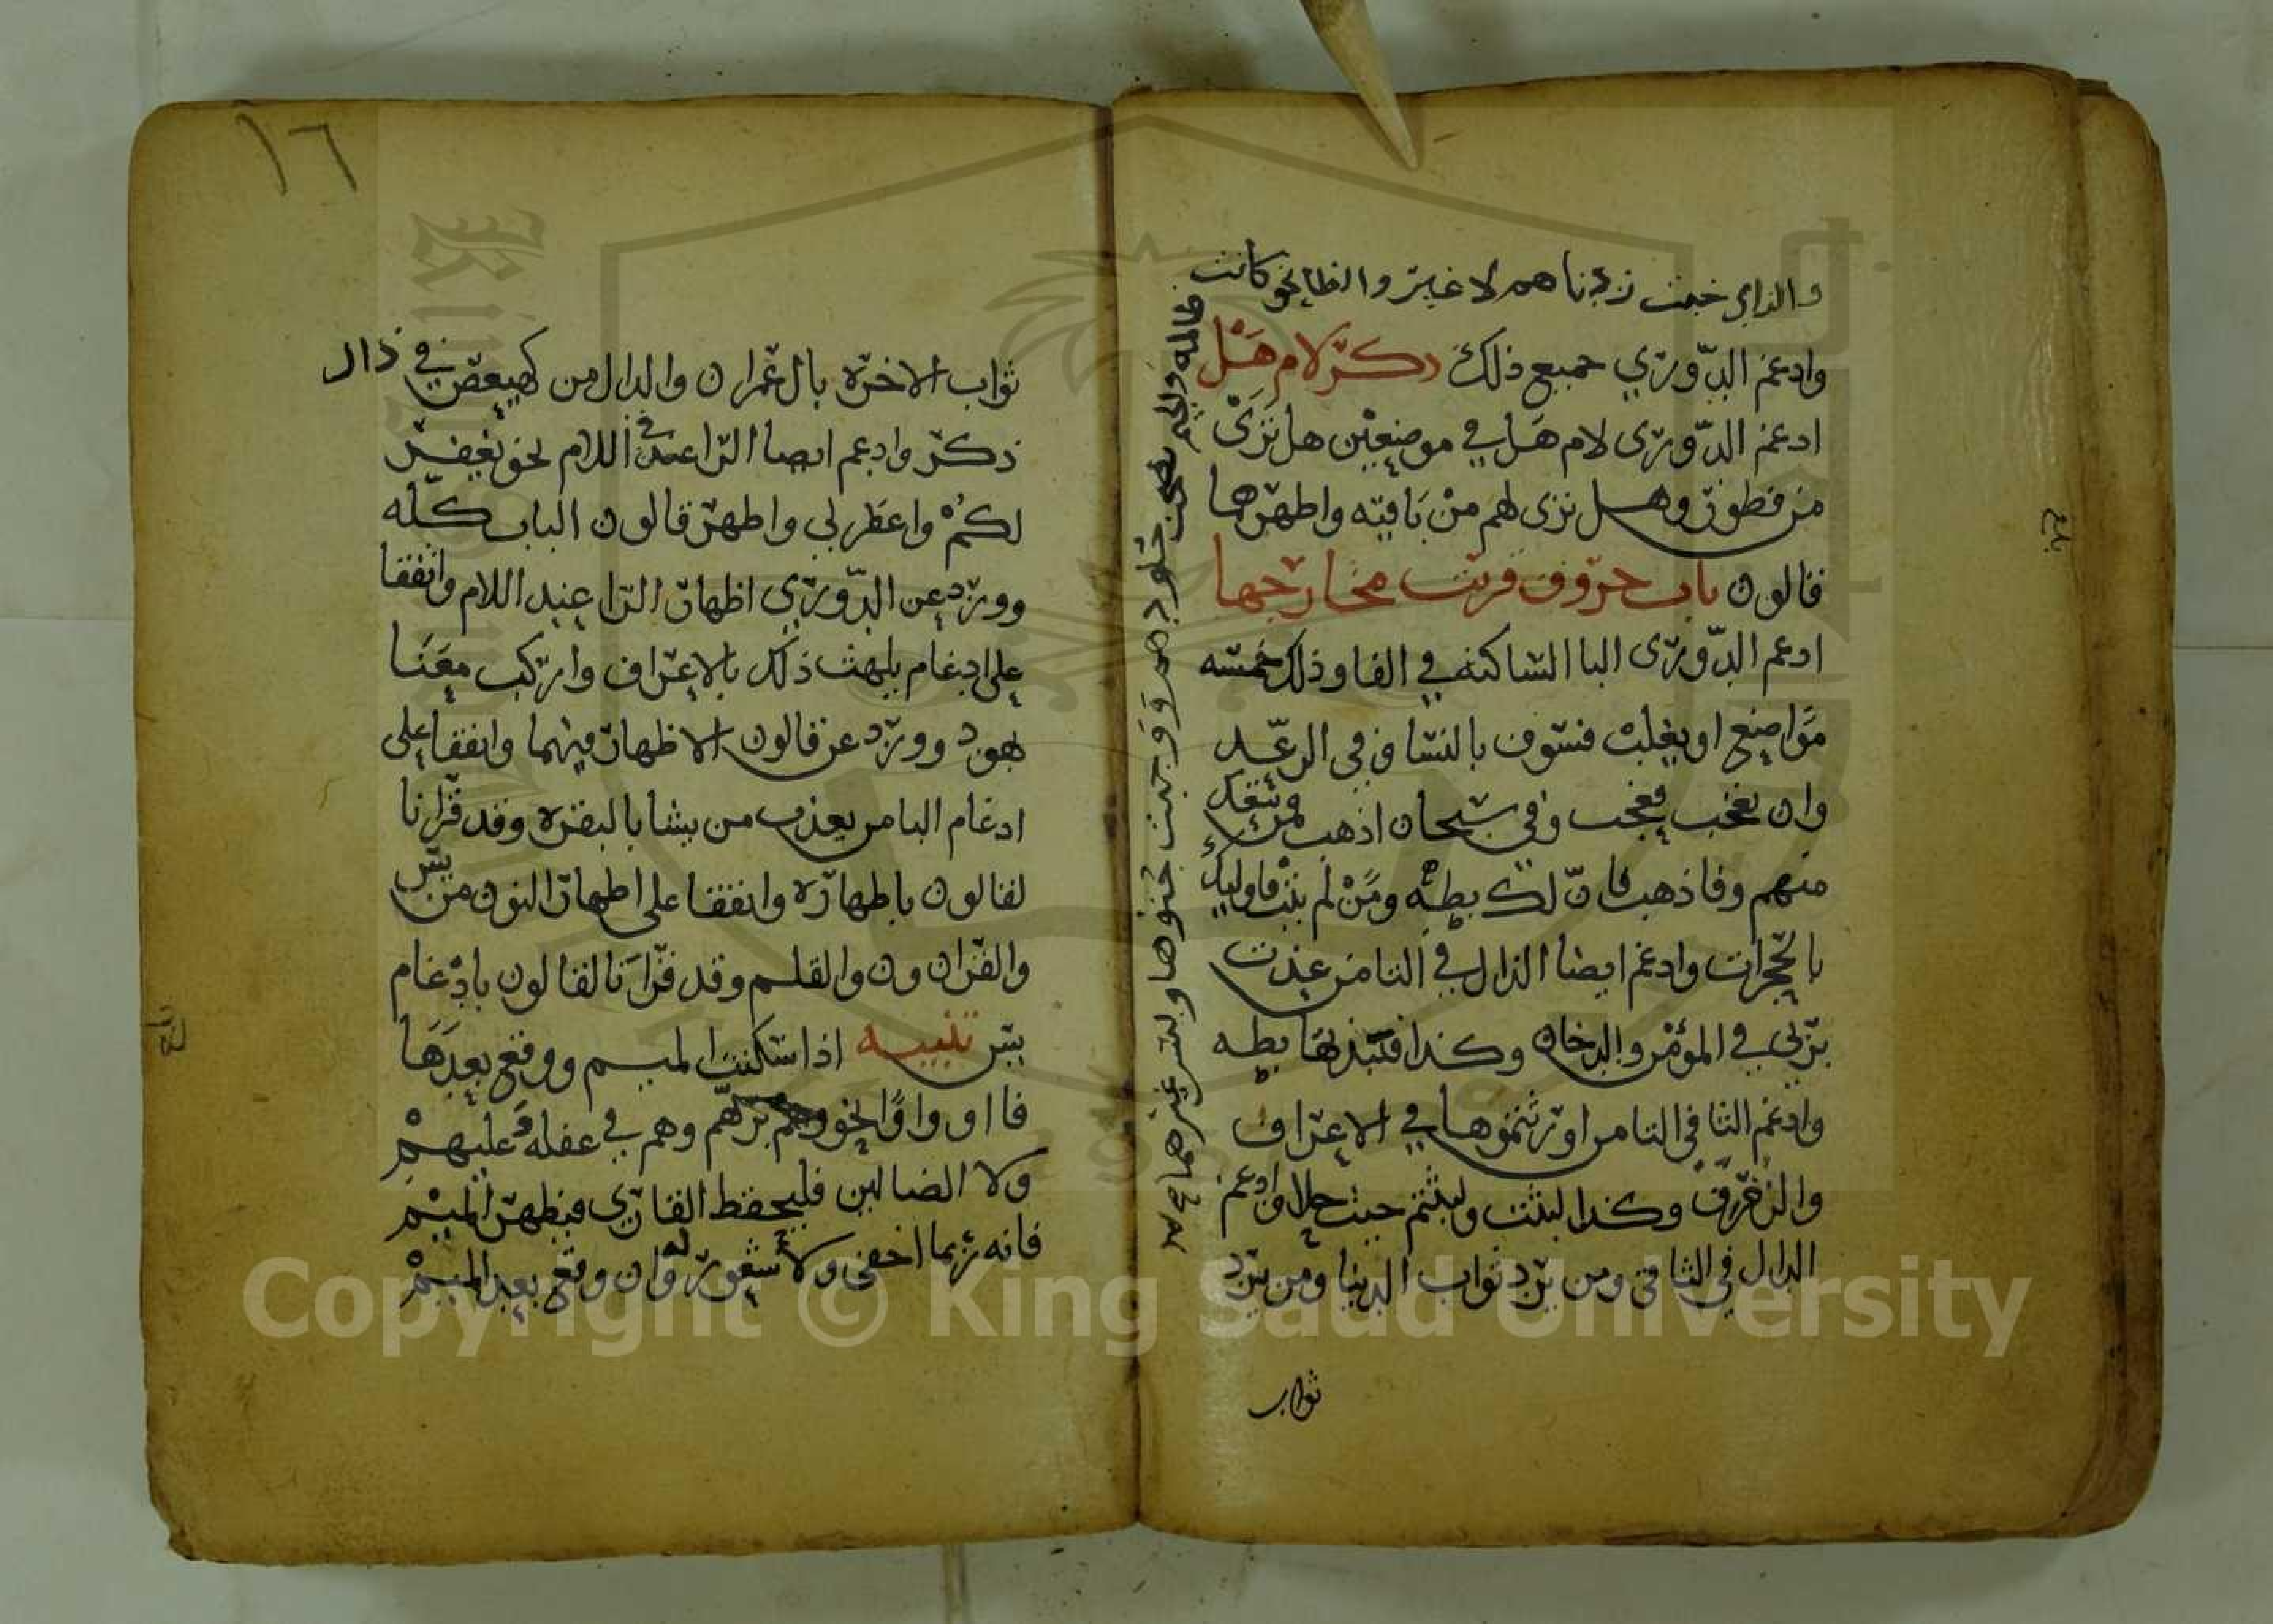 والزاي خبت زدناهم لا غير والظا نحو كانت
ظالمه والجيم نضجت جلودهم ووجبت جنوبها وليس غيرهما
وادغم الدوري جميع ذلك ذكر لام هل
ادغم الدوري لام هل في موضعين هل ترى
من فطور وهل ترى لهم من باقيه واظهرهما
قالون باب حروف قربت مخارجها
ادغم الدوري البا الساكنه في الفا وذلك خمسه
مواضع او يغلب فسوف بالنسا وفي الرعد
وان تعجب فعجب وفي سبحان اذهب فمن تبعك
منهم وفاذهب فان لك بطه ومن لم يتب فاوليك
بالحجرات وادغم ايضا الذال في التا من عذت
بربي في المؤمن والدخان وكذا فنبذتها بطه
وادغم الثا في التا من اورثتموها في الاعراف
والزخرف وكذا لبثت ولبثتم حيث حلا وادغم
الدال في الثا في ومن يرد ثواب الدنيا ومن يرد
ثواب
بلغ
١٦
ثواب الاخره بال عمران والدال من كهيعص في ذال
ذكر وادغم ايضا الرا عند اللام نحو يغفر
لكم واغفر لي واظهر قالون الباب كله
وورد عن الدوري اظهار الرا عند اللام واتفقا
على ادغام يلهث ذلك بالاعراف واركب معنا
بهود وورد عن قالون الاظهار فيهما واتفقا على
ادغام البا من يعذب من يشا بالبقره وقد قرانا
لقالون باظهاره واتفقا على اظهار النون من يس
والقران ون والقلم وقد قرانا لقالون بادغام
يس تنبيه اذا سكنت الميم ووقع بعدها
فا او واو نحو هم وهم في غفله عليهم
ولا الضالين فليحفظ القاري فيظهر الميم
فانه ربما اخفى ولا شعور له وان وقع بعد الميم
Copyright © King Saud University